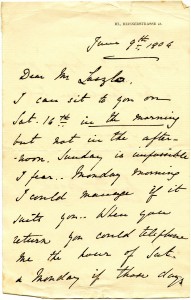 June 9th. 1904
Dear Mr. Laszlo.
I can sit to you on
Sat. 16th in the morning
but not in the after-
noon. Sunday is impossible
I fear.. Monday morning
I could manage if it
suits you.. When you
return you could telephone
me the hour of Sat.
a Monday if those days